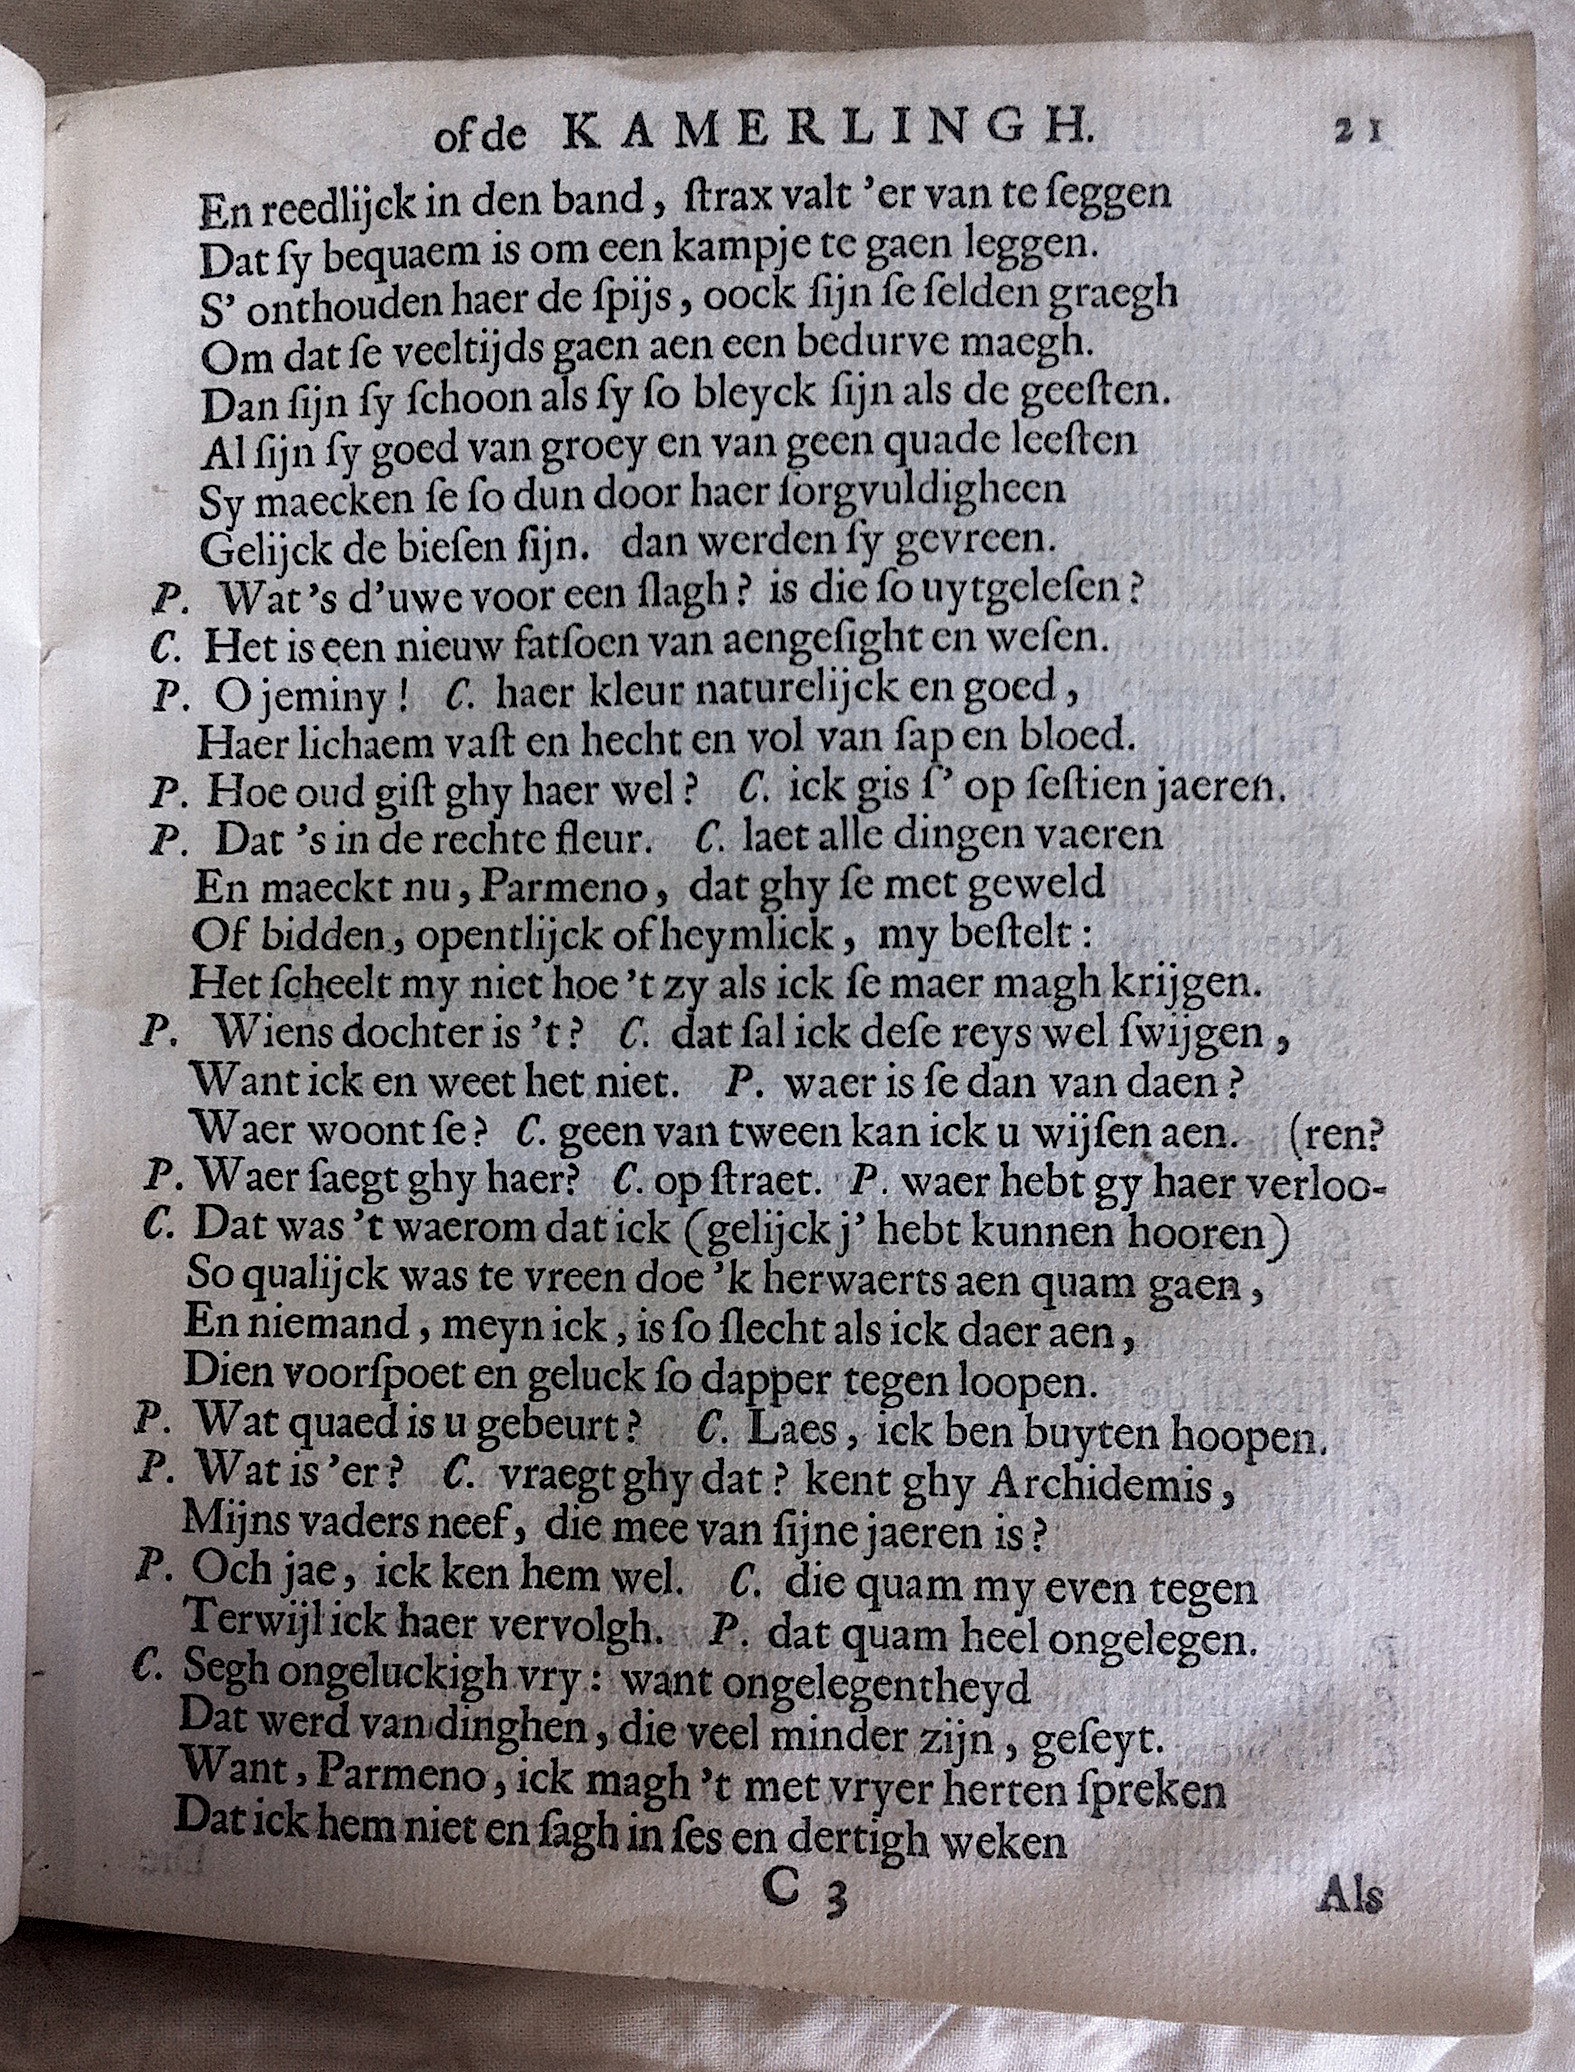 of de KAMERLINGH. 21
En reedlijck in den band, ſtrax valt 'er van te ſeggen
Dat ſy bequaem is om een kampje te gaen leggen.
S' onthouden haer de ſpijs, oock ſijn ſe ſelden graegh
Om dat ſe veeltijds gaen aen een bedurve maegh.
Dan ſijn ſy ſchoon als ſy ſo bleyck ſijn als de geeſten.
Al ſijn ſy goed van groey en van geen quade leeſten
Sy maecken ſe ſo dun door haer ſorgvuldigheen
Gelijck de bieſen ſijn. dan werden ſy gevreen.
P. Wat 's d'uwe voor een ſlagh? is die ſo uytgeleſen?
C. Het is een nieuw fatſoen van aengeſight en weſen.
P. O jeminy! C. haer kleur naturelijck en goed,
Haer lichaem vaſt en hecht en vol van ſap en bloed.
P. Hoe oud giſt ghy haer wel? C. ick gis ſ' op ſeſtien jaeren.
P. Dat 's in de rechte fleur. C. laet alle dingen vaeren
En maeckt nu, Parmeno, dat ghy ſe met geweld
Of bidden, opentlijck of heymlick, my beſtelt:
Het ſcheelt my niet hoe 't zy als ick ſe maer magh krijgen.
P. Wiens dochter is 't? C. dat ſal ick deſe reys wel ſwijgen,
Want ick en weet het niet. P. waer is ſe dan van daen?
Waer woont ſe? C. geen van tween kan ick u wijſen aen. (ren?
P. Waer ſaegt ghy haer? C. op ſtraet. P. waer hebt gy haer verloo-
C. Dat was 't waerom dat ick (gelijck j' hebt kunnen hooren)
So qualijck was te vreen doe 'k herwaerts aen quam gaen,
En niemand, meyn ick, is ſo ſlecht als ick daer aen,
Dien voorſpoet en geluck ſo dapper tegen loopen.
P. Wat quaed is u gebeurt? C. Laes, ick ben buyten hoopen.
P. Wat is 'er? C. vraegt ghy dat? kent ghy Archidemis,
Mijns vaders neef, die mee van ſijne jaeren is?
P. Och jae, ick ken hem wel. C. die quam my even tegen
Terwijl ick haer vervolgh. P. dat quam heel ongelegen.
C. Segh ongeluckigh vry: want ongelegentheyd
Dat werd van dinghen, die veel minder zijn, geſeyt.
Want, Parmeno, ick magh 't met vryer herten ſpreken
Dat ick hem niet en ſagh in ſes en dertigh weken
C 3 Als